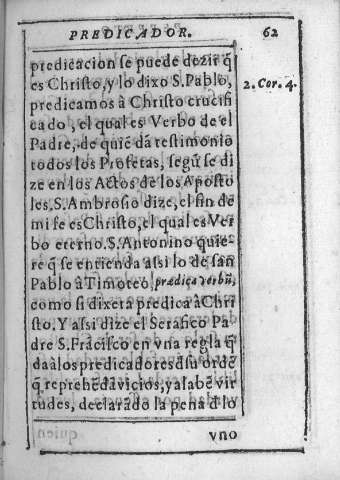 PREDICADOR. 62
predicacion se puede dezir q̃
es Christo, y lo dixo S. Pablo,
2. Cor. 4.
predicamos à Christo crucifi
cado, el qual es Verbo de el
Padre, de quiẽ dã testimonio
todos los Profetas, segũ se di
ze en los Actos de los Aposto
les. S. Ambrosio dize, el fin de
mi fe es Christo, el qual es Ver
bo eterno. S. Antonino quie-
re q̃ se entienda assi lo de san
Pablo à Timoteo, prædica verbũ,
como si dixera predica à Chri
sto. Y assi dize el Serafico Pa
dre S. Frãcisco en vna regla q̃
da à los predicadores d̃ su ordẽ
q̃ reprehẽdã vicios, y alabẽ vir
tudes, declarãdo la pena d̃ lo
vno